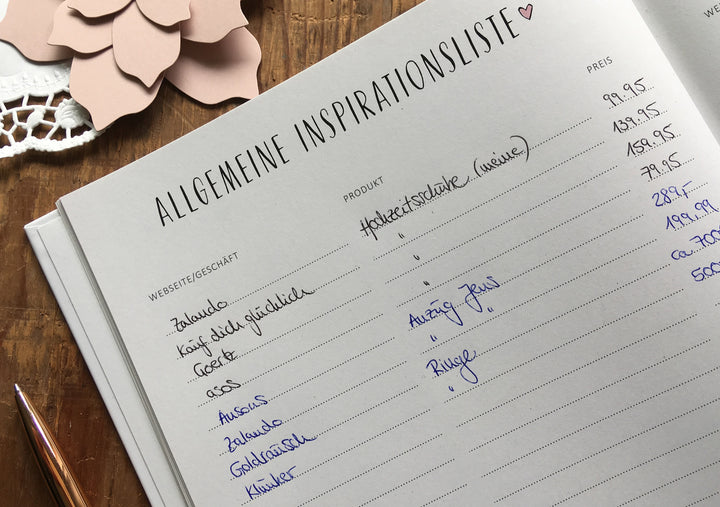 ALLGEMEINE INSPIRATIONSLISTE
WEBSEITE/GESCHÄFT PRODUKT PREIS
Zalando Hochzeitsschuhe (meine) 99.95
Kauf dich glücklich " 139.95
Goertz " 159.95
asos " 79.95
Ansons Anzug Jens 289,-
Zalando " " 199,99
Goldrausch Ringe ca 700
Klunker "
WE